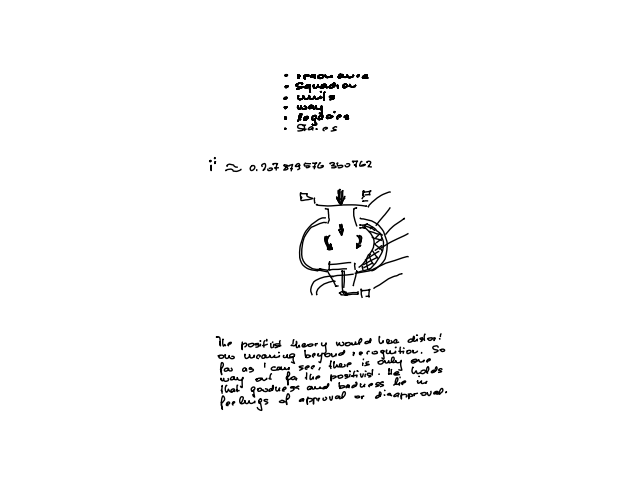 Squadron
units
way
Reggies
States
i^i ≈ 0.207 879 576 350 762
The positivist theory would here distort
our meaning beyond recognition. So
far as I can see, there is only one
way out for the positivist. He holds
that goodness and badness lie in
feelings of approval or disapproval.